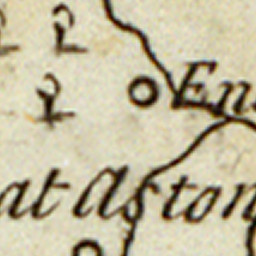 Ens
at Aston